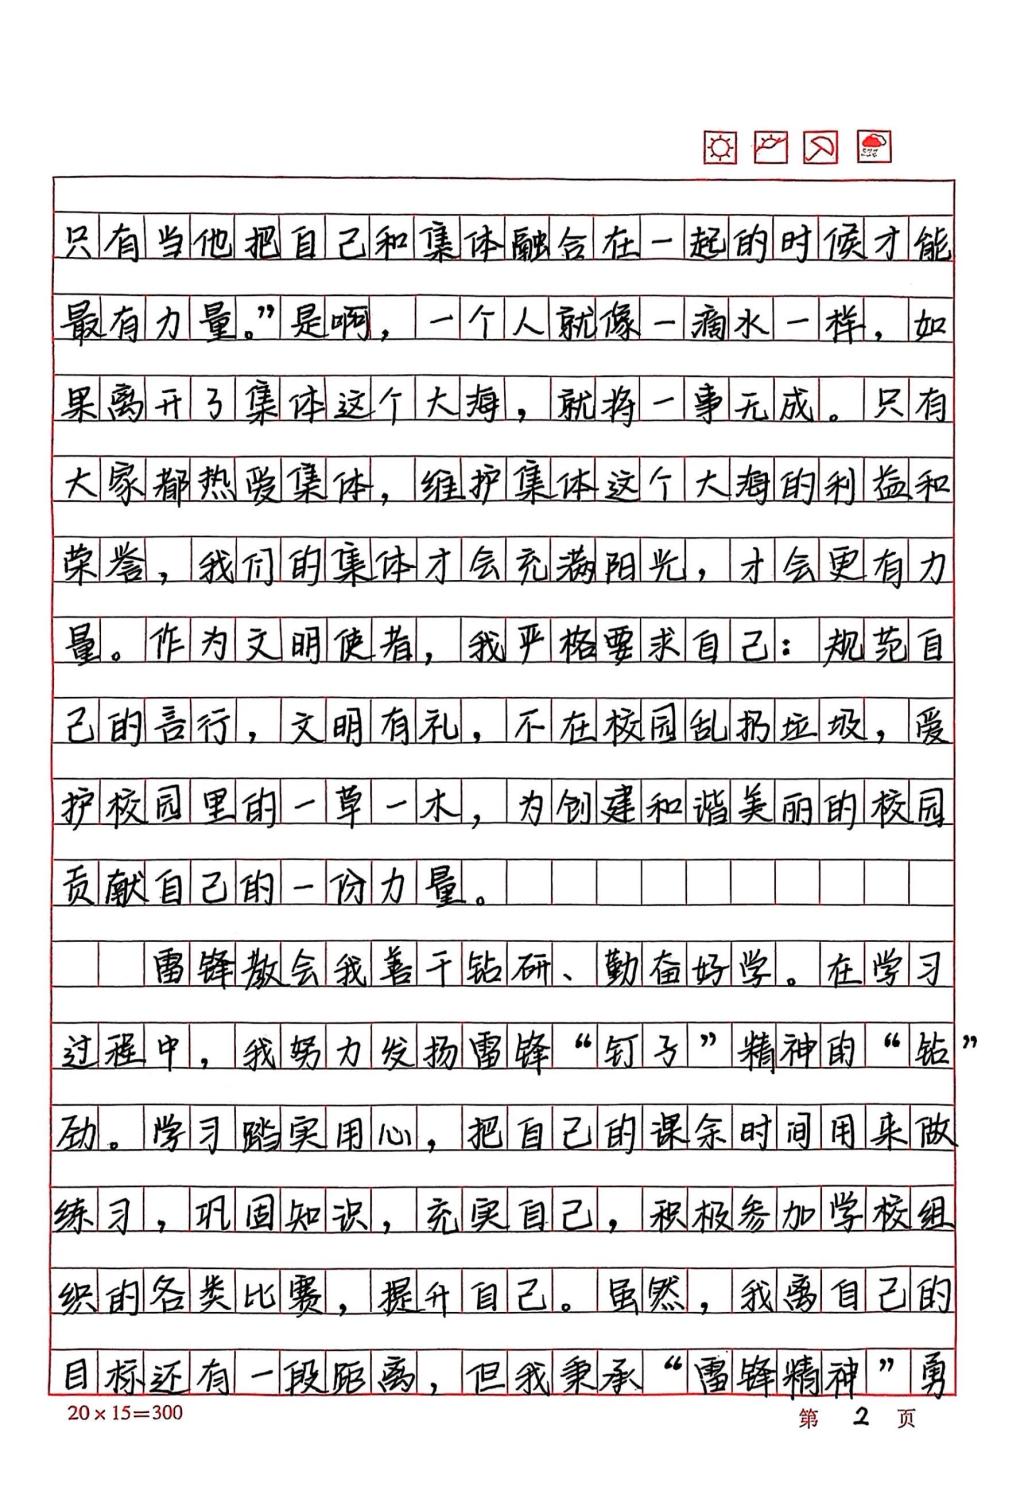 只有当他把自己和集体融合在一起的时候才能
最有力量。”是啊，一个人就像一滴水一样，如
果离开了集体这个大海，就将一事无成。只有
大家都热爱集体，维护集体这个大海的利益和
荣誉，我们的集体才会充满阳光，才会更有力
量。作为文明使者，我严格要求自己：规范自
己的言行，文明有礼，不在校园乱扔垃圾，爱
护校园里的一草一木，为创建和谐美丽的校园
贡献自己的一份力量。
雷锋教会我善于钻研、勤奋好学。在学习
过程中，我努力发扬雷锋“钉子”精神的“钻”
劲。学习踏实用心，把自己的课余时间用来做
练习，巩固知识，充实自己，积极参加学校组
织的各类比赛，提升自己。虽然，我离自己的
目标还有一段距离，但我秉承“雷锋精神”勇
20×15=300
第 2 页